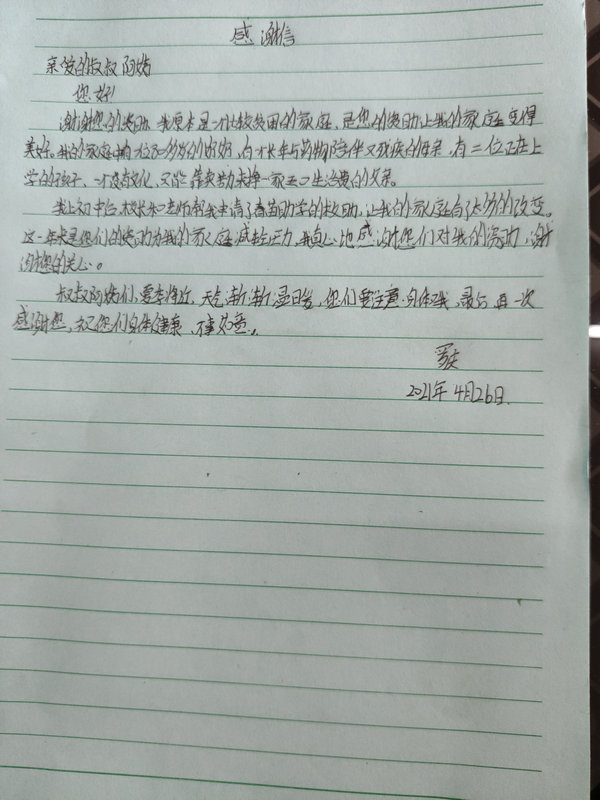 感谢信
亲爱的叔叔阿姨
您好!
谢谢您的资助.我原本是一个比较贫困的家庭.是您的资助让我的家庭变得
美好.我的家庭由一位70多岁的奶奶,有一个长年与药物陪伴又残疾的母亲,有二位正在上
学的孩子、一个没有文化、只能靠卖劳力来挣一家五口生活费的父亲。
我上初中后,校长和老师帮我申请了春苗助学的救助,让我的家庭有了大多的改变。
这一年来是您们的资助为我的家庭减轻压力,我真心地感谢您们对我的资助,谢
谢您的关心。
叔叔阿姨们,夏季将近,天气渐渐显日炎,您们要注意身体哦,最后再一次
感谢您,祝您们身体健康、事如意。
2021年4月26日.